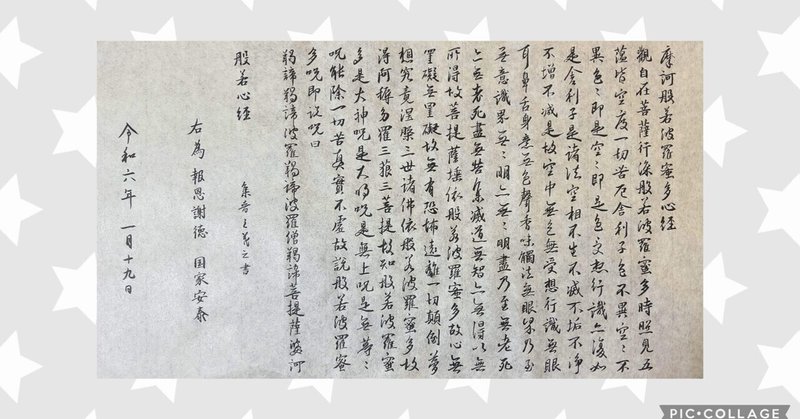 摩訶般若波羅蜜多心経
觀自在菩薩行深般若波羅蜜多時照見五
薀皆空度一切苦厄舍利子色不異空々不
異色々即是空々即是色受想行識亦復如
是舍利子是諸法空相不生不滅不垢不浄
不増不減是故空中無色無受想行識無眼
耳鼻舌身意無色聲香味觸法無眼界乃至
無意識界無々明亦無々明盡乃至無老死
亦無老死盡無苦集滅道無智亦無得以無
所得故菩提薩埵依般若波羅蜜多故心無
罣礙無罣礙故無有恐怖遠離一切顛倒夢
想究竟涅槃三世諸佛依般若波羅蜜多故
得阿耨多羅三藐三菩提故知般若波羅蜜
多是大神呪是大明呪是無上呪是無等々
呪能除一切苦真實不虚故說般若波羅蜜
多呪即説呪曰
羯諦羯諦波羅羯諦波羅僧羯諦菩提薩婆訶
般若心経
集晋王羲之書
右為報恩謝徳 国家安泰
令和六年 一月十九日
PIC•COLLAGE